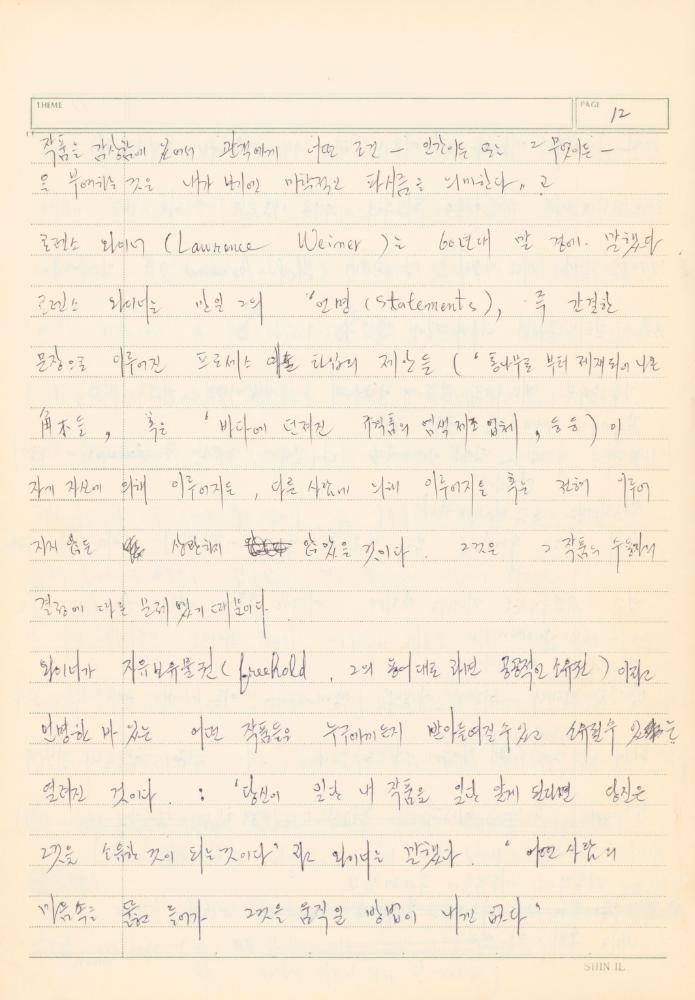 THEME
PAGE 12
"작품을 감상함에 있어서 관객에게 어떤 조건 – 인간이든 또는 그 무엇이든 –
을 부여하는 것은 내가 보기엔 미학적인 파시즘을 의미한다." 고
로렌스 와이너 (Lawrence Weiner)는 60년대 말 경에 말했다
로렌스 와이너는 만일 그의 "언명 (statements), 즉 간결한
문장으로 이루어진 프로세스 타입의 제안들 ( '통나무로 부터 제재되어 나온
角木들, 혹은 '바다에 던져진 염색제조업체, 등등) 이
자기 자신에 의해 이루어지든, 다른 사람에 의해 이루어지든 혹은 전혀 이루어
지지 않든 상관하지 않았을 것이다. 그것은 그 작품의 수용자의
결정에 따른 문제였기 때문이다.
와이너가 자유보유물권 (freehold, 그의 용어대로 라면 공공적인 소유권) 이라고
언명한 바 있는 어떤 작품들은 누구에게든지 받아들여질 수 있고 소유될 수 있는
열려진 것이다. : '당신이 일단 내 작품을 일단 알게 된다면 당신은
그것을 소유한 것이 되는 것이다' 라고 와이너는 말했다. ' 어떤 사람의
마음속을 뚫고 들어가 그것을 움직일 방법이 내겐 없다'
SHIN IL